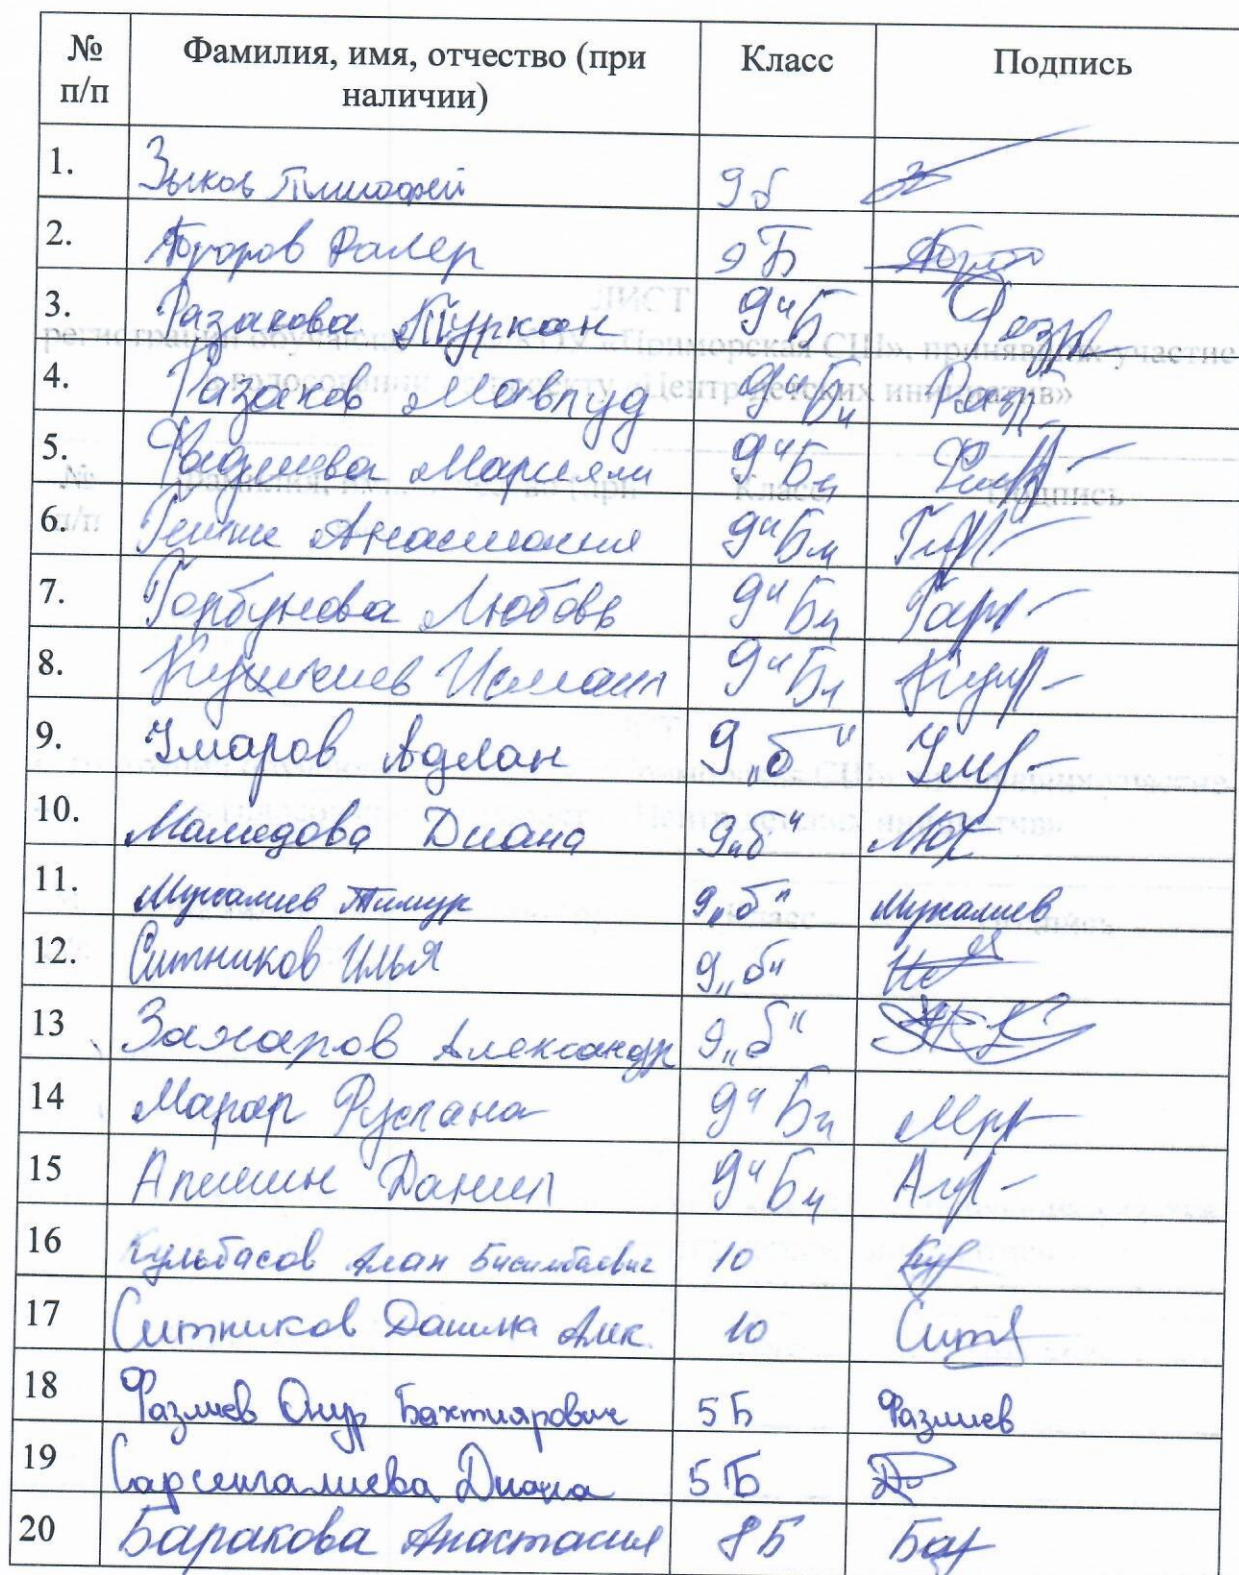 № п/п Фамилия, имя, отчество (при наличии) Класс Подпись
1. Зыков Тимофей 9б
2. Далер 9Б
3. Разакова Туркан 9"Б
4. Разаков Мавлуд 9"Б"
5. Фадиева Мариям 9"Б"
6. Анастасия 9"Б"
7. Горбунова Любовь 9"Б"
8. Исмаил 9"Б"
9. Умаров Адлан 9„б"
10. Мамедова Диана 9„б"
11. Мукалиев Тимур 9„б" Мукалиев
12. Ситников Илья 9„б"
13 Захаров Александр 9„б"
14 Марар Руслана 9"Б"
15 Апишин Данил 9"Б"
16 Кульбасов Алан 10
17 Ситников Алек. 10
18 Фазлиев Онур Бахтиярович 5Б Фазлиев
19 Сарсенгалиева Диана 5Б
20 Баракова Анастасия 8Б Бар